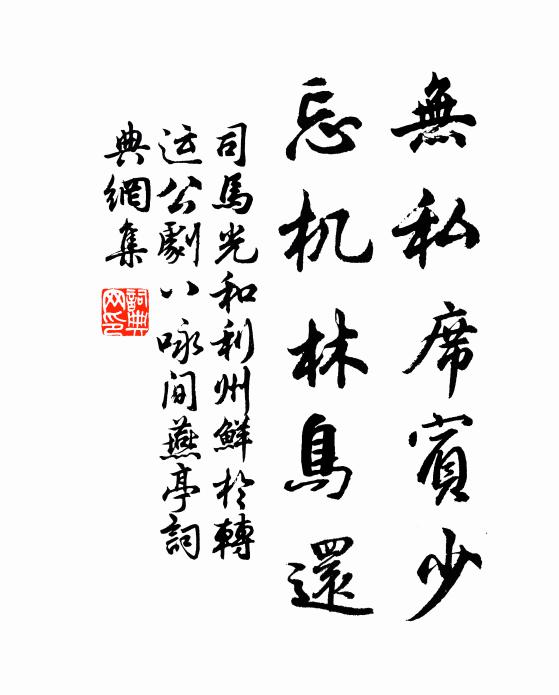 無私席賓少
忘机林鳥還
司馬光和利州鮮于轉
运公劇八咏间燕亭詞
典網集
詞典网印